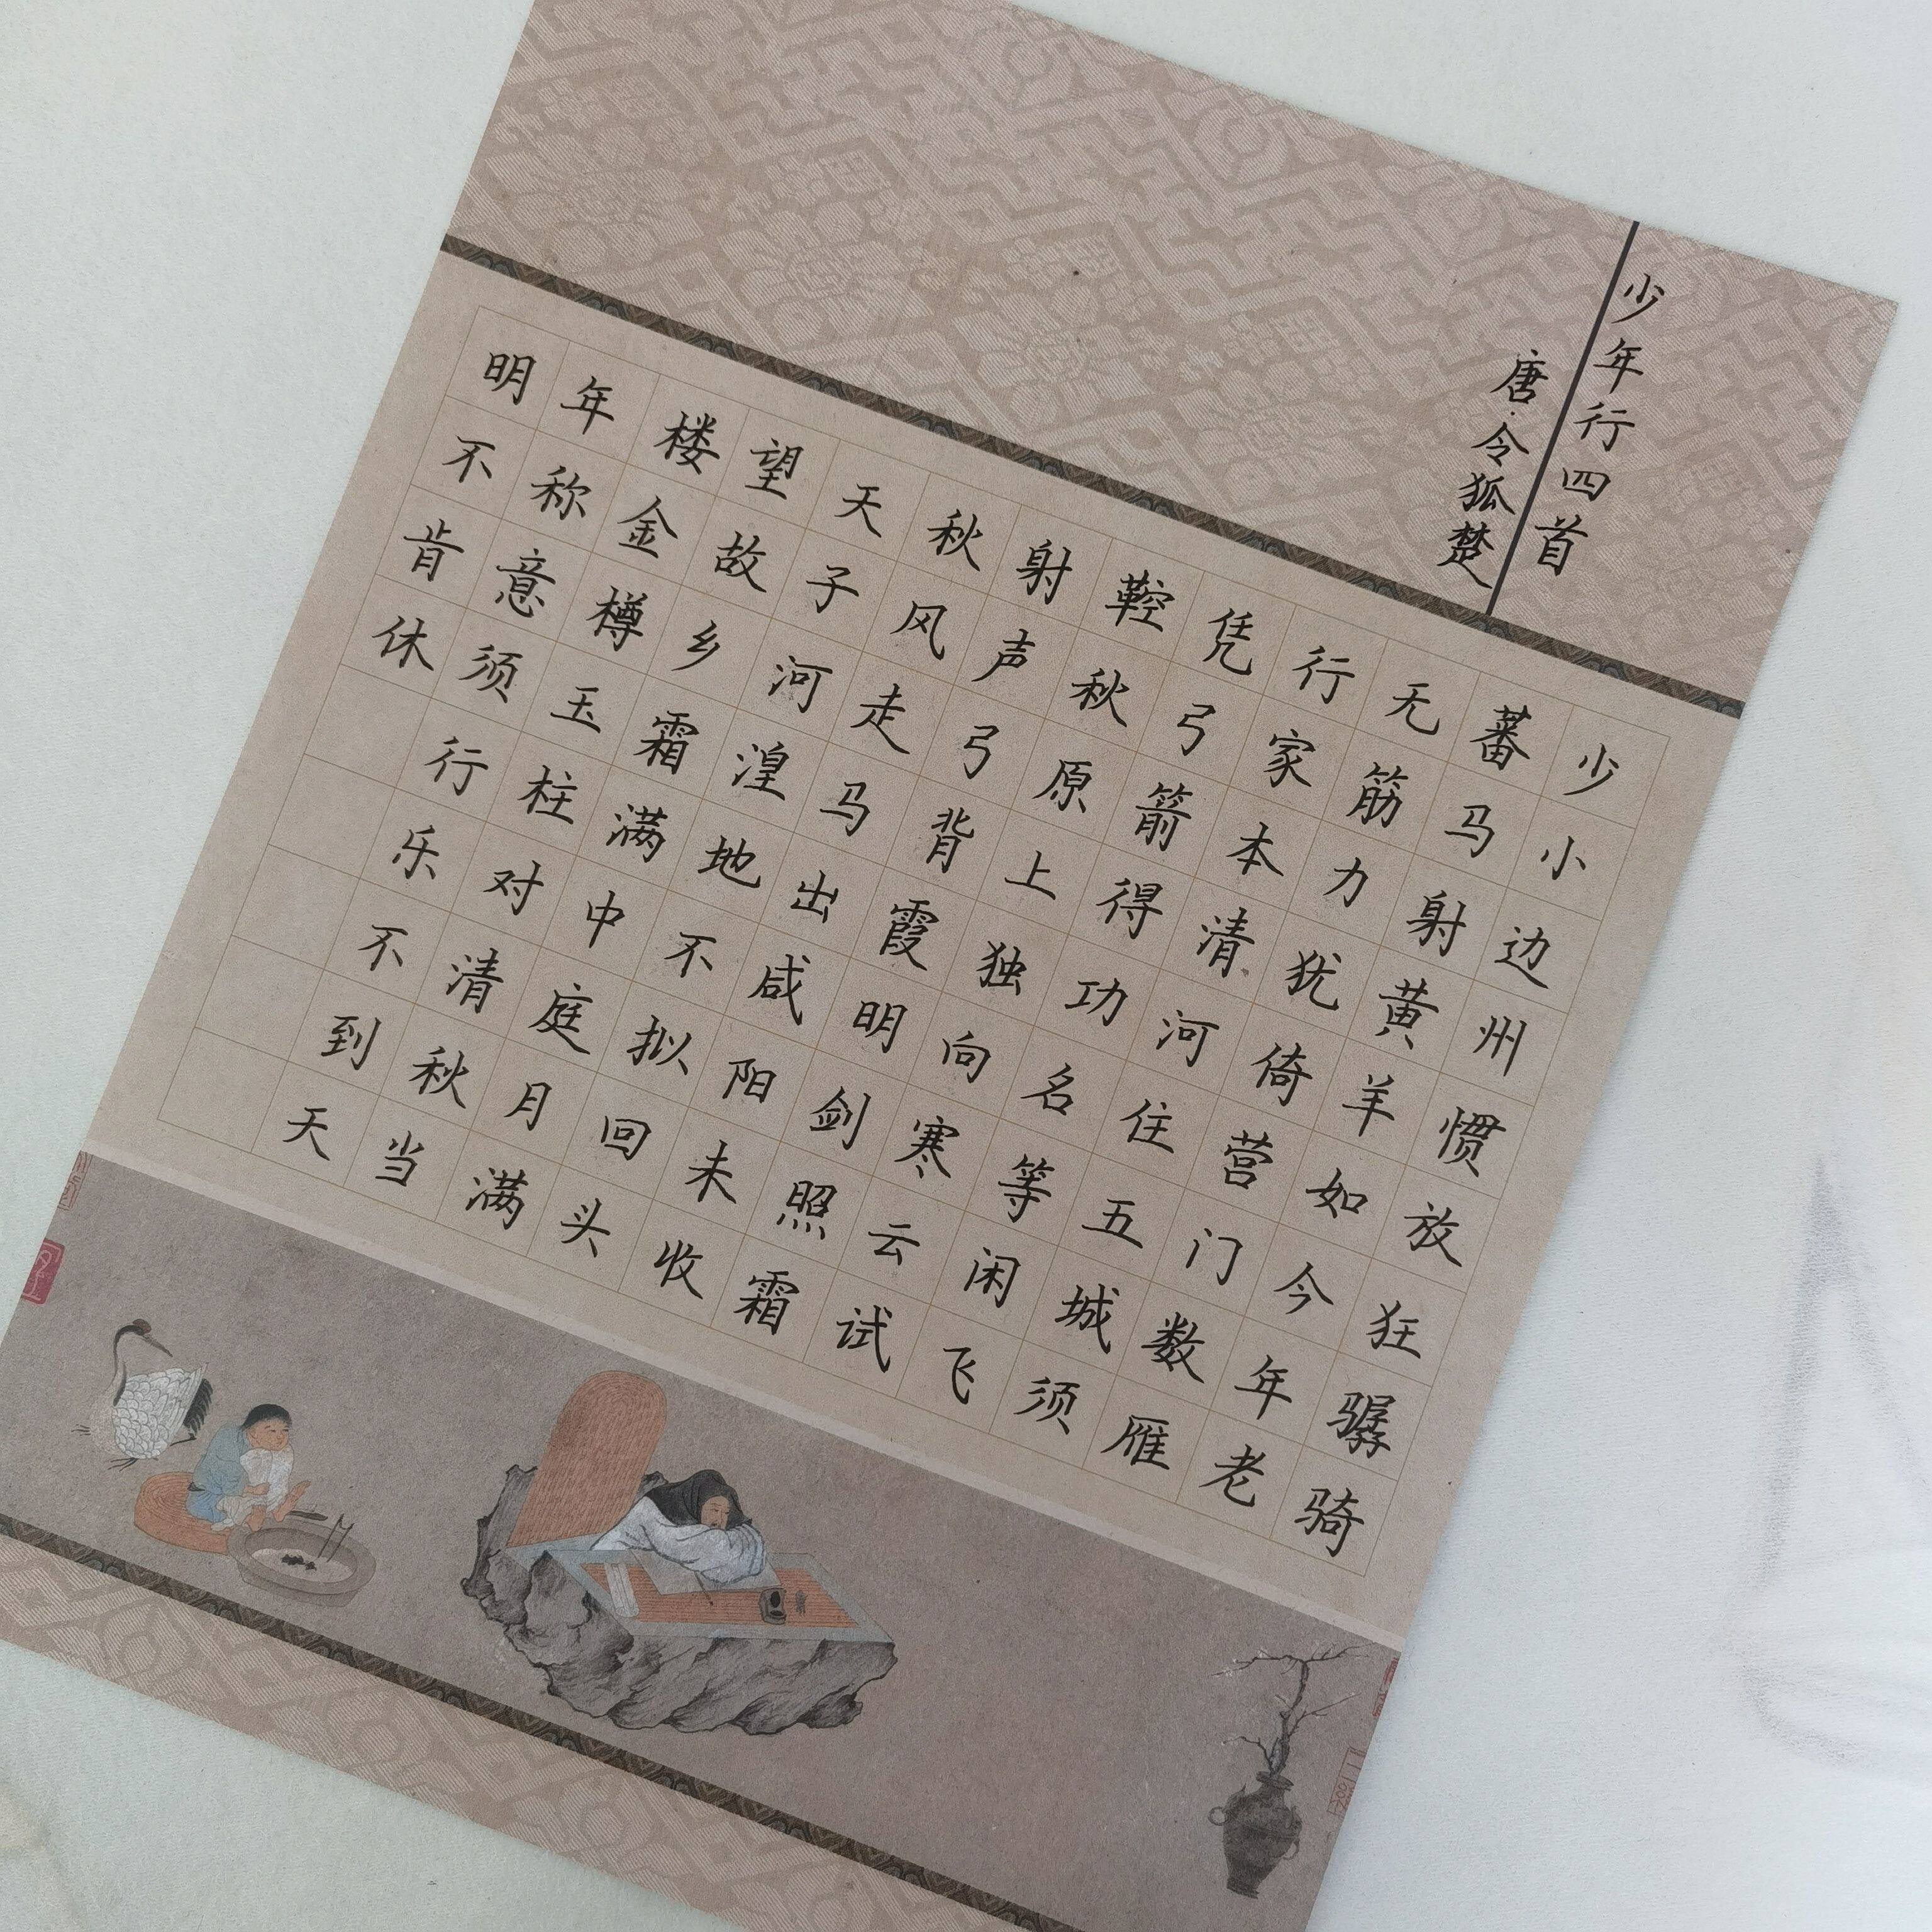 少年行四首
唐·令狐楚
少小边州惯放狂骣骑
蕃马射黄羊如今年老
无筋力犹倚营门数雁
行家本清河住五城须
凭弓箭得功名等闲飞
鞚秋原上独向寒云试
射声弓背霞明剑照霜
秋风走马出咸阳未收
天子河湟地不拟回头
望故乡霜满中庭月满
楼金樽玉柱对清秋当
年称意须行乐不到天
明不肯休